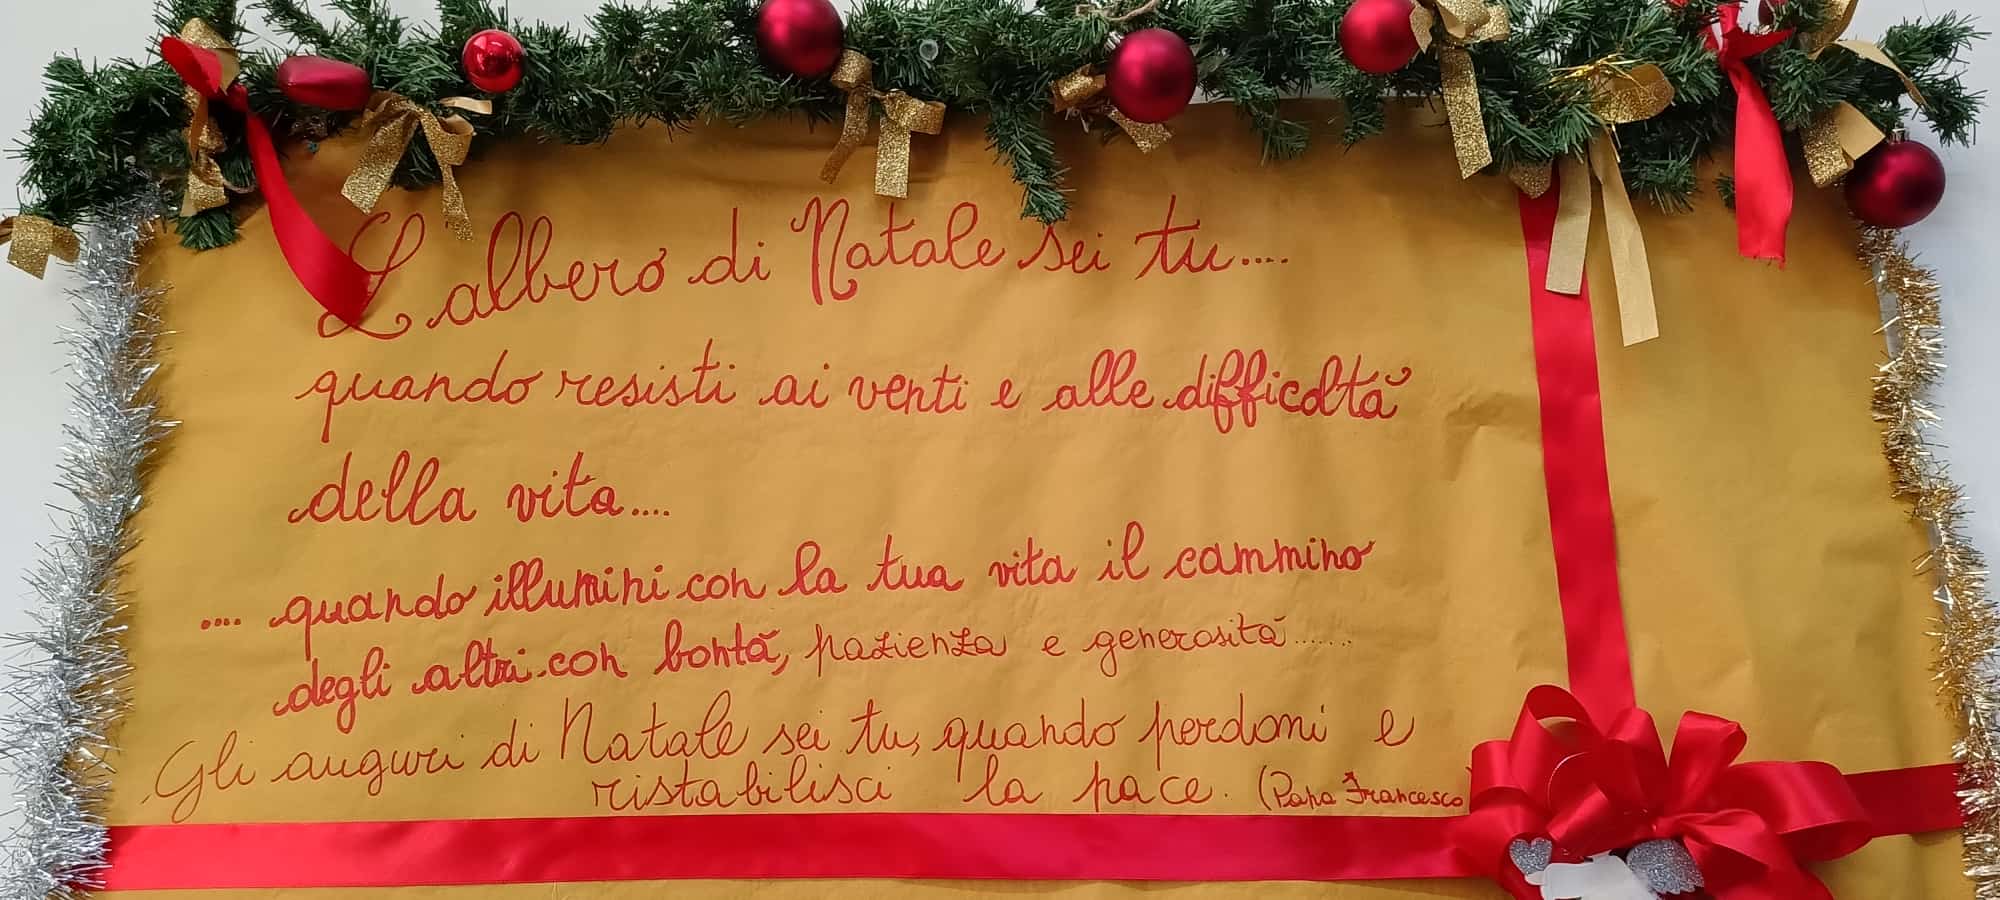 L'albero di Natale sei tu....
quando resisti ai venti e alle difficoltà
della vita....
.... quando illumini con la tua vita il cammino
degli altri con bontà, pazienza e generosità.......
Gli auguri di Natale sei tu, quando perdoni e
ristabilisci la pace. (Papa Francesco)